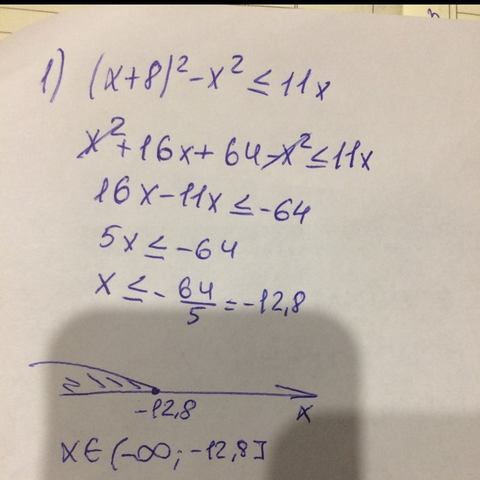 1) (x+8)² - x² ≤ 11x
x² + 16x + 64 - x² ≤ 11x
16x - 11x ≤ -64
5x ≤ -64
x ≤ - 64/5 = -12,8
-12,8 x
x ∈ (-∞; -12,8]